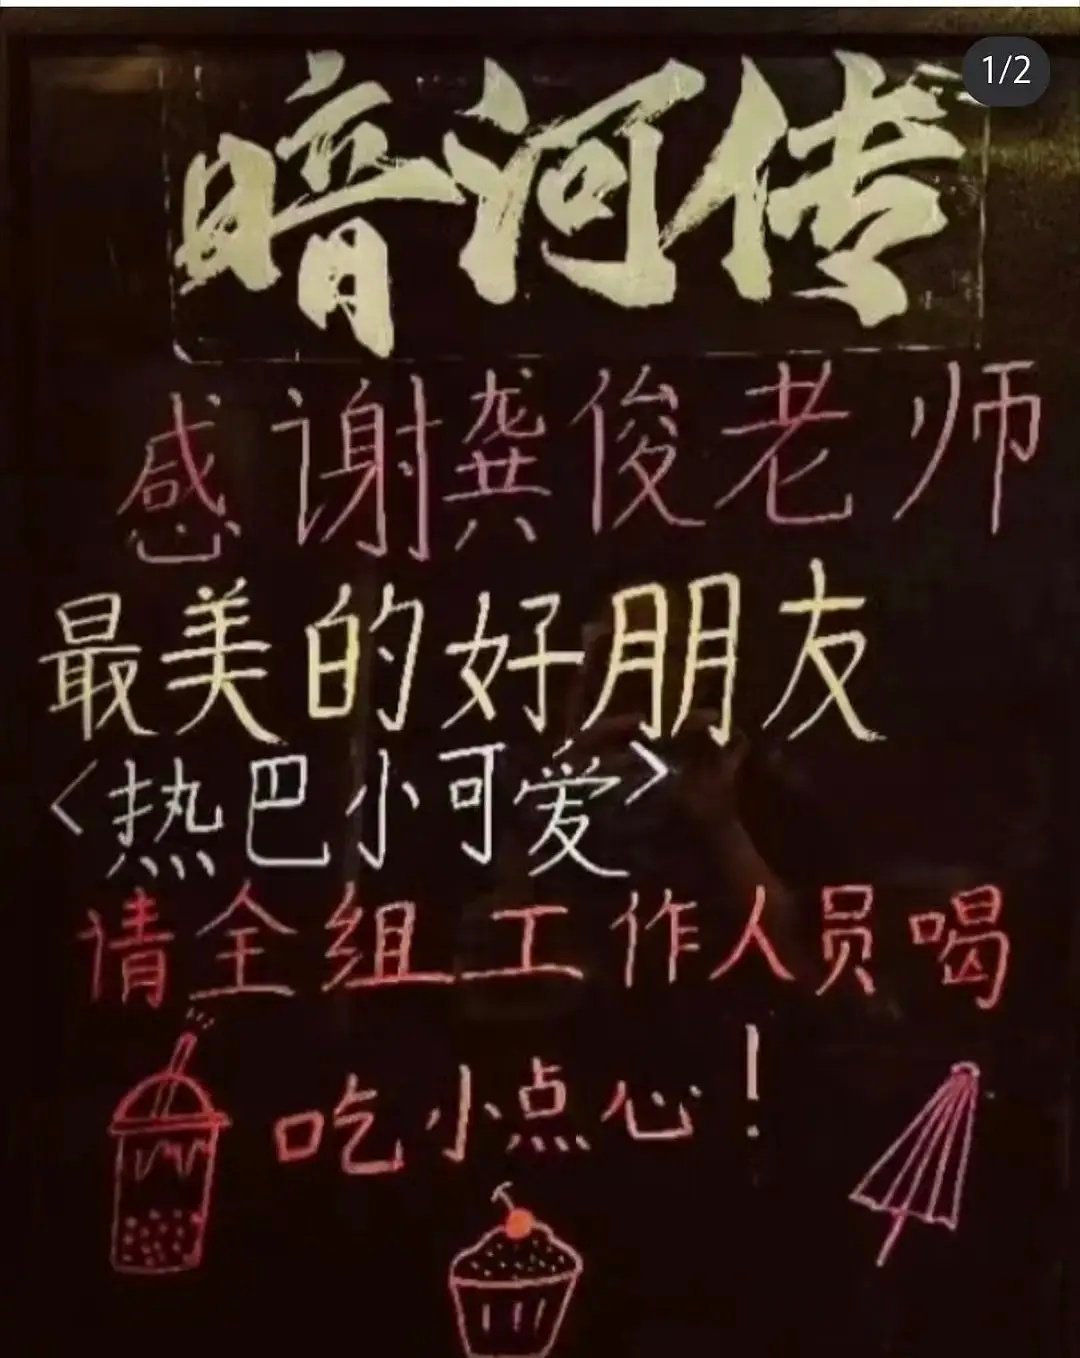 1/2
暗河传
感谢龚俊老师
最美的好朋友
<热巴小可爱>
请全组工作人员喝
吃小点心!